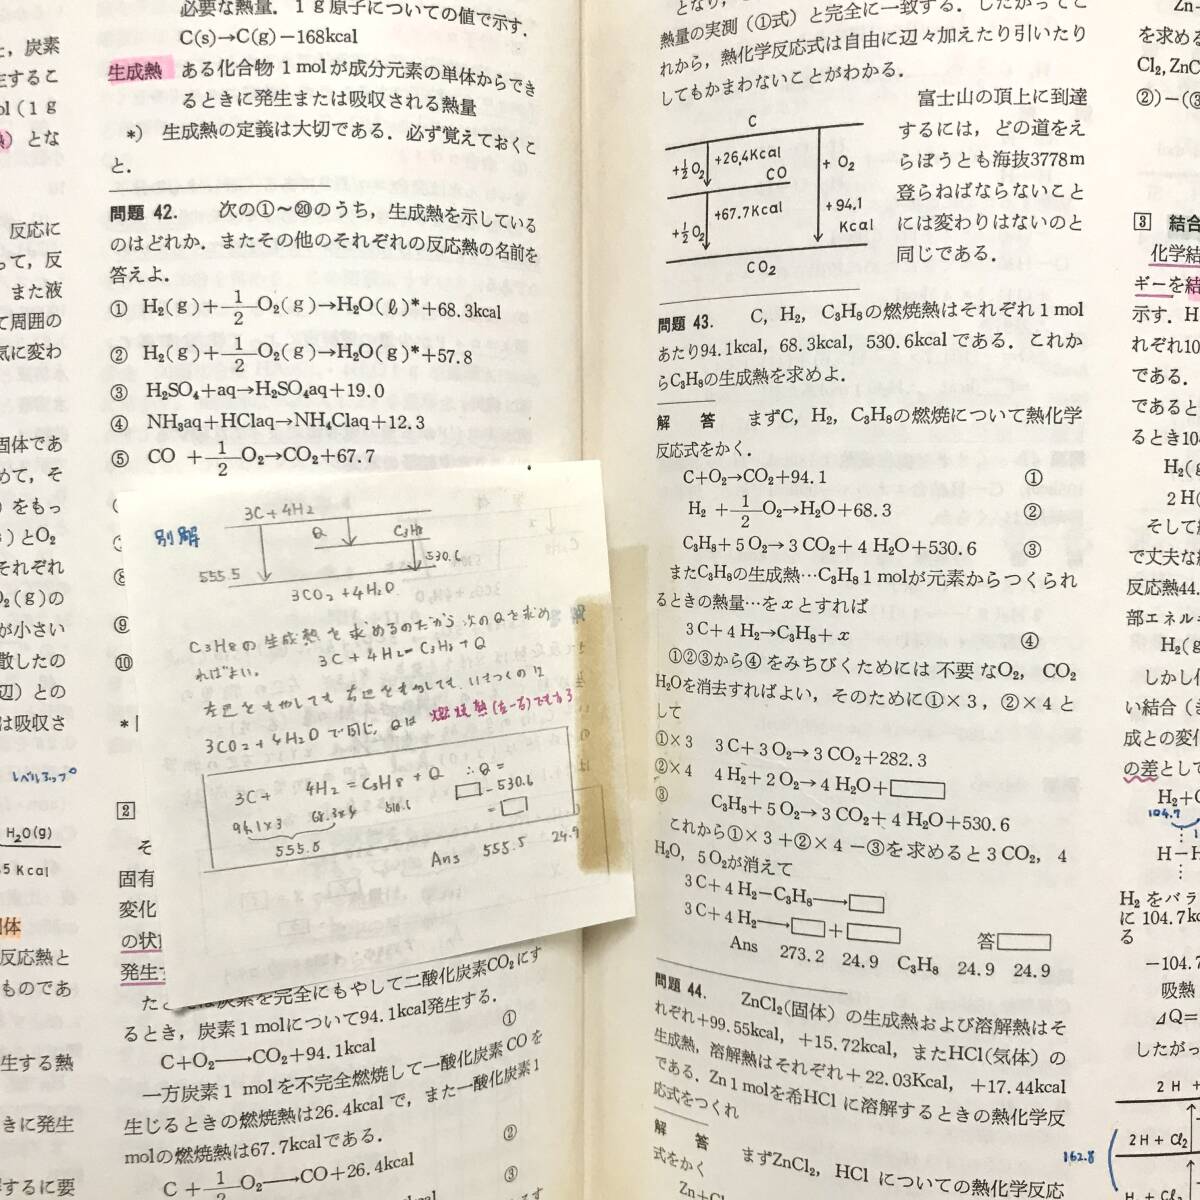 必要な熱量．1g原子についての値で示す．
C(s)→C(g)−168kcal
生成熱 ある化合物1molが成分元素の単体からでき
るときに発生または吸収される熱量
*) 生成熱の定義は大切である．必ず覚えておくこ
と．
問題 42． 次の①〜⑳のうち，生成熱を示している
のはどれか．またその他のそれぞれの反応熱の名前を
答えよ．
① H₂(g)+1/2O₂(g)→H₂O(ℓ)*+68.3kcal
② H₂(g)+1/2O₂(g)→H₂O(g)*+57.8
③ H₂SO₄+aq→H₂SO₄aq+19.0
④ NH₃aq+HClaq→NH₄Claq+12.3
⑤ CO +1/2O₂→CO₂+67.7
⑧
⑨
⑩
*
2
別解
3C+4H2
Q
C3H8
555.5
530.6
3CO2+4H2O
C3H8の生成熱を求めるのだから次のQを求め
ればよい。 3C+4H2=C3H8+Q
左辺をもやしても右辺をもやしても、いきつくのは
3CO2+4H2Oで同じ。Qは燃焼熱(左−右)でもある
3C+ 4H2=C3H8+Q ∴Q=
94.1×3 68.3×4 530.6 □−530.6
555.5 =□
Ans 555.5 24.9
そ
固有
変化
の状
発生
たとえば炭素を完全にもやして二酸化炭素CO₂にす
るとき，炭素1molについて94.1kcal発生する．
C+O₂→CO₂+94.1kcal ①
一方炭素1molを不完全燃焼して一酸化炭素COを
生じるときの燃焼熱は26.4kcalで，また一酸化炭素1
molの燃焼熱は67.7kcalである．
C+1/2O₂→CO+26.4kcal ②
③
熱量の実測（①式）と完全に一致する．したがってこ
れから，熱化学反応式は自由に辺々加えたり引いたり
してもかまわないことがわかる．
富士山の頂上に到達
するには，どの道をえ
らぼうとも海抜3778m
登らねばならないこと
には変わりはないのと
同じである．
C
+½O₂ +26.4Kcal
CO
+O₂
+½O₂ +67.7Kcal
+94.1
Kcal
CO₂
問題 43． C，H₂，C₃H₈の燃焼熱はそれぞれ1mol
あたり94.1kcal，68.3kcal，530.6kcalである．これか
らC₃H₈の生成熱を求めよ．
解 答 まずC，H₂，C₃H₈の燃焼について熱化学
反応式をかく．
C+O₂→CO₂+94.1 ①
H₂ +1/2O₂→H₂O+68.3 ②
C₃H₈+5O₂→3CO₂+4H₂O+530.6 ③
またC₃H₈の生成熱…C₃H₈1molが元素からつくられ
るときの熱量…をxとすれば
3C+4H₂→C₃H₈+x ④
①②③から④をみちびくためには不要なO₂，CO₂
H₂Oを消去すればよい，そのために①×3，②×4と
して
①×3 3C+3O₂→3CO₂+282.3
②×4 4H₂+2O₂→4H₂O+□
③ C₃H₈+5O₂→3CO₂+4H₂O+530.6
これから①×3+②×4−③を求めると3CO₂，4
H₂O，5O₂が消えて
3C+4H₂−C₃H₈→□
3C+4H₂→□+□ 答□
Ans 273.2 24.9 C₃H₈ 24.9 24.9
問題 44． ZnCl₂(固体)の生成熱および溶解熱はそ
れぞれ+99.55kcal，+15.72kcal，またHCl(気体)の
生成熱，溶解熱はそれぞれ+22.03Kcal，+17.44kcal
である．Zn1molを希HClに溶解するときの熱化学反
応式をつくれ
解 答 まずZnCl₂，HClについての熱化学反応
式をかく
，炭素
生するこ
ol(1g
とな
反応に
って，反
また液
て周囲の
気に変わ
固体であ
めて，そ
）をもっ
）とO₂
それぞれ
O₂(g)の
が小さい
散したの
辺）との
は吸収さ
レベルアップ。
H₂O(g)
.5Kcal
固体
反応熱と
ものであ
生する熱
きに発生
解するに要
を求める
Cl₂，ZnC
②)−(③
3 結合
化学結
ギーを結
示す．H
れぞれ10
である．
であると
るとき10
H₂(g
2H(
そして
で丈夫な
反応熱44.
部エネル
H₂(g
しかし
い結合（
成との変化
の差として
H₂+C
104.7
H−H
H₂をバラ
に104.7k
る
−104.7
吸熱
ΔQ=
したがっ
2H+
2H+Cl₂
162.8
H₂+Cl₂